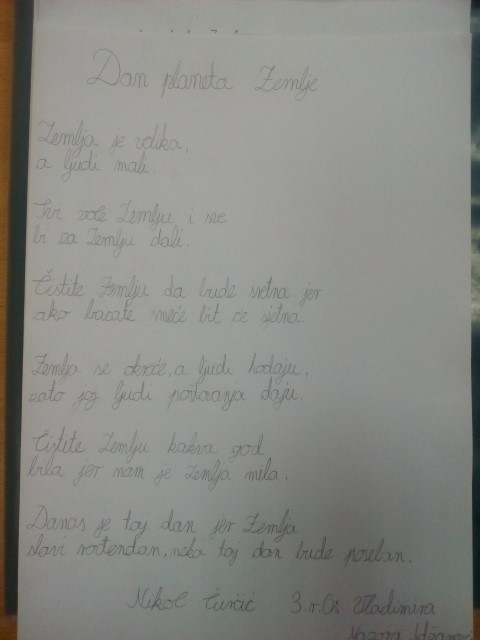 Dan planeta Zemlje
Zemlja je velika,
a ljudi mali.
Svi vole Zemlju i sve
bi za Zemlju dali.
Čistite Zemlju da bude sretna jer
ako bacate smeće bit će sjetna.
Zemlja se okreće, a ljudi hodaju,
zato joj ljudi poštovanja daju.
Čistite Zemlju kakva god
bila jer nam je Zemlja mila.
Danas je taj dan jer Zemlja
slavi rođendan, neka taj dan bude poseban.
Nikol Ćurčić 3.r. Oš Vladimira
Nazora